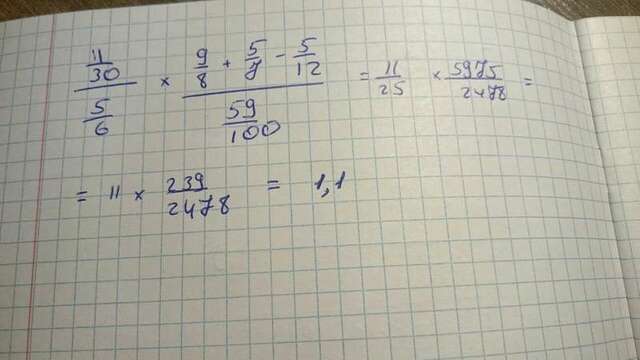 11/30 / 5/6 × (9/8 + 5/7 - 5/12) / 59/100 = 11/25 × 5975/2478 =
= 11 × 239/2478 = 1,1